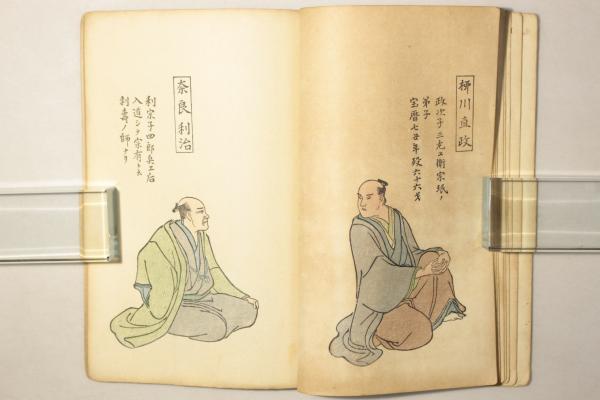 柳川直政
政次子三左エ衛宗珉ノ
弟子
宝暦七丑年歿六十六才
奈良利治
利宗子四郎兵エ后
入道シテ宗有ト云
利壽ノ師ナリ